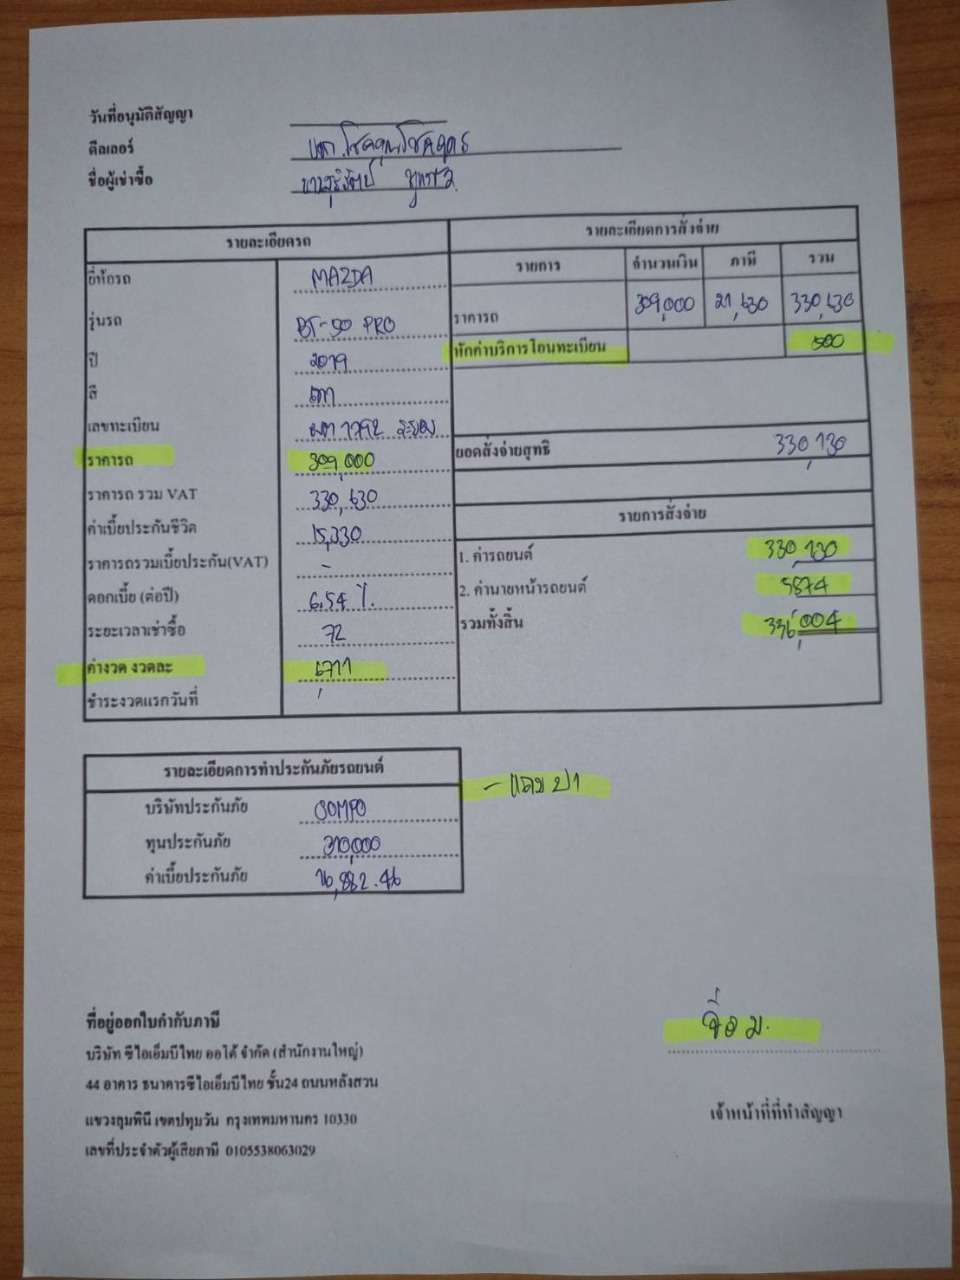 วันที่อนุมัติสัญญา
ดีลเลอร์ หจก.โชคคูณโชค
ชื่อผู้เช่าซื้อ
รายละเอียดรถ
ยี่ห้อรถ MAZDA
รุ่นรถ BT-50 PRO
ปี 2019
สี เทา
เลขทะเบียน ระยอง
ราคารถ 309,000
ราคารถ รวม VAT 330,630
ค่าเบี้ยประกันชีวิต 15,330
ราคารถรวมเบี้ยประกัน(VAT) -
ดอกเบี้ย (ต่อปี) 6.54 %.
ระยะเวลาเช่าซื้อ 72
ค่างวด งวดละ 6,711
ชำระงวดแรกวันที่
รายละเอียดการสั่งจ่าย
รายการ จำนวนเงิน ภาษี รวม
ราคารถ 309,000 21,630 330,630
หักค่าบริการโอนทะเบียน 500
ยอดสั่งจ่ายสุทธิ 330,130
รายการสั่งจ่าย
1. ค่ารถยนต์ 330,130
2. ค่านายหน้ารถยนต์ 5874
รวมทั้งสิ้น 336,004
รายละเอียดการทำประกันภัยรถยนต์
บริษัทประกันภัย SOMPO
ทุนประกันภัย 310,000
ค่าเบี้ยประกันภัย 16,882.46
- แถม ป1
ที่อยู่ออกใบกำกับภาษี
บริษัท ซีไอเอ็มบีไทย ออโต้ จำกัด (สำนักงานใหญ่)
44 อาคาร ธนาคารซีไอเอ็มบีไทย ชั้น24 ถนนหลังสวน
แขวงลุมพินี เขตปทุมวัน กรุงเทพมหานคร 10330
เลขที่ประจำตัวผู้เสียภาษี 0105538063029
เจ้าหน้าที่ที่ทำสัญญา